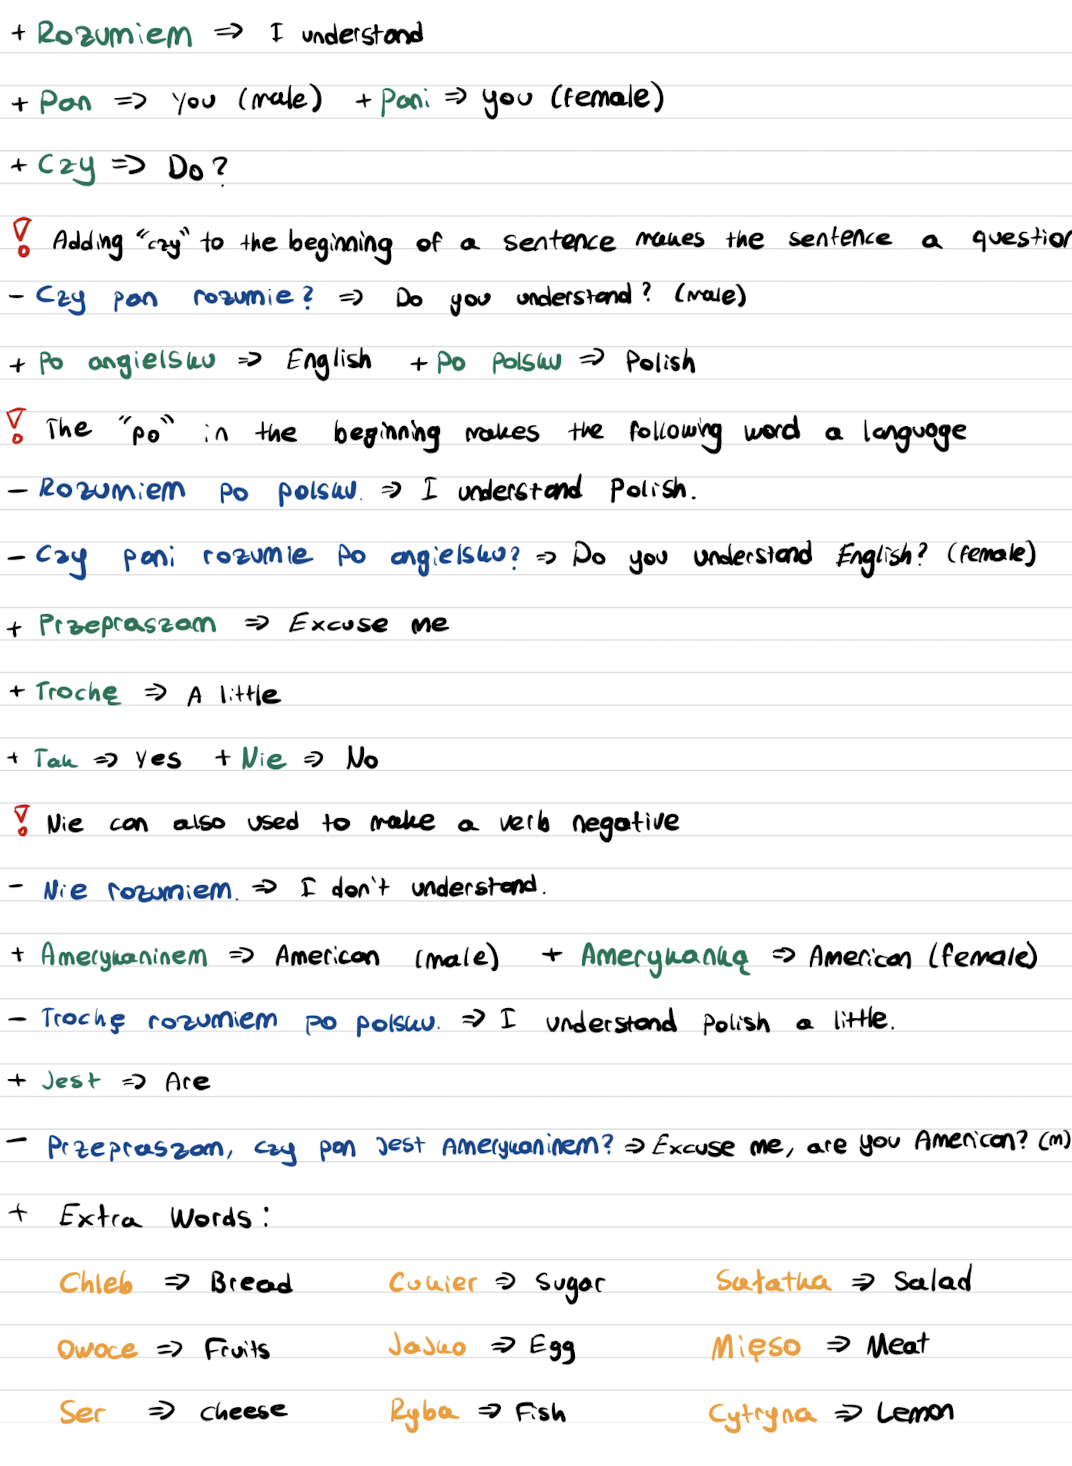 + Rozumiem ⇒ I understand
+ Pan ⇒ you (male) + Pani ⇒ you (female)
+ Czy ⇒ Do?
! Adding "czy" to the beginning of a sentence makes the sentence a question
- Czy pan rozumie? ⇒ Do you understand? (male)
+ Po angielsku ⇒ English + Po polsku ⇒ Polish
! The "po" in the beginning makes the following word a language
- Rozumiem po polsku. ⇒ I understand Polish.
- Czy pani rozumie po angielsku? ⇒ Do you understand English? (female)
+ Przepraszam ⇒ Excuse me
+ Trochę ⇒ A little
+ Tak ⇒ Yes + Nie ⇒ No
! Nie can also used to make a verb negative
- Nie rozumiem. ⇒ I don't understand.
+ Amerykaninem ⇒ American (male) + Amerykanką ⇒ American (female)
- Trochę rozumiem po polsku. ⇒ I understand Polish a little.
+ Jest ⇒ Are
- Przepraszam, czy pan jest Amerykaninem? ⇒ Excuse me, are you American? (m)
+ Extra Words:
Chleb ⇒ Bread Cukier ⇒ Sugar Sałatka ⇒ Salad
Owoce ⇒ Fruits Jajko ⇒ Egg Mięso ⇒ Meat
Ser ⇒ cheese Ryba ⇒ Fish Cytryna ⇒ Lemon